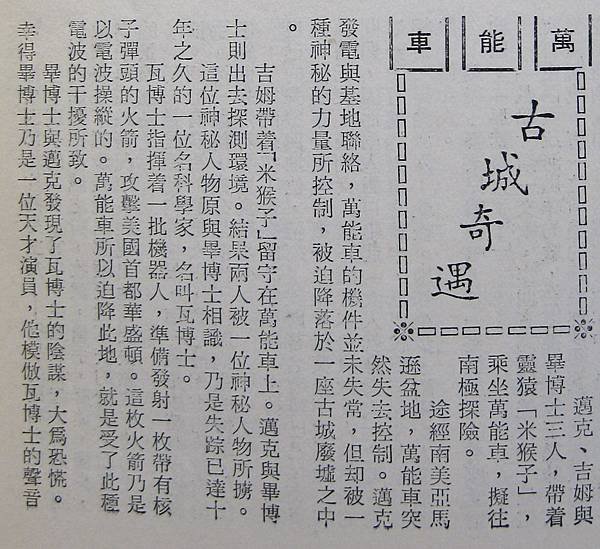 萬能車
古城奇遇
邁克、吉姆與
畢博士三人，帶着
靈猿「米猴子」，
乘坐萬能車，擬往
南極探險。
途經南美亞馬
遜盆地，萬能車突
然失去控制。邁克
發電與基地聯絡，萬能車的機件並未失常，但却被一
種神秘的力量所控制，被迫降落於一座古城廢墟之中
。
吉姆帶着「米猴子」留守在萬能車上。邁克與畢博
士則出去探測環境。結果兩人被一位神秘人物所擄。
這位神秘人物原與畢博士相識，乃是失踪已達十
年之久的一位名科學家，名叫瓦博士。
瓦博士指揮着一批機器人，準備發射一枚帶有核
子彈頭的火箭，攻擊美國首都華盛頓。這枚火箭乃是
以電波操縱的。萬能車所以迫降此地，就是受了此種
電波的干擾所致。
畢博士與邁克發現了瓦博士的陰謀，大爲恐慌。
幸得畢博士乃是一位天才演員，他模倣瓦博士的聲音